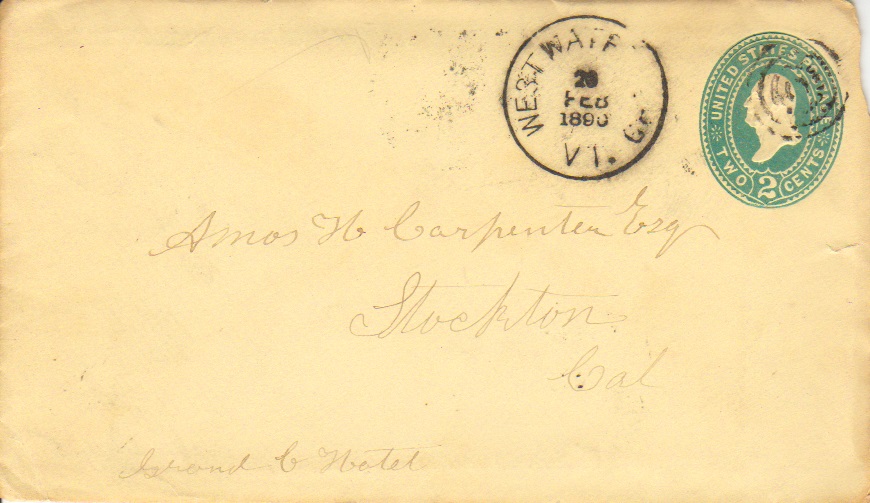 WEST WATE
28
FEB
1890
VT.
UNITED STATES
TWO 2 CENTS
Amos H Carpenter Esq
Stockton
Cal
Grand C Hotel